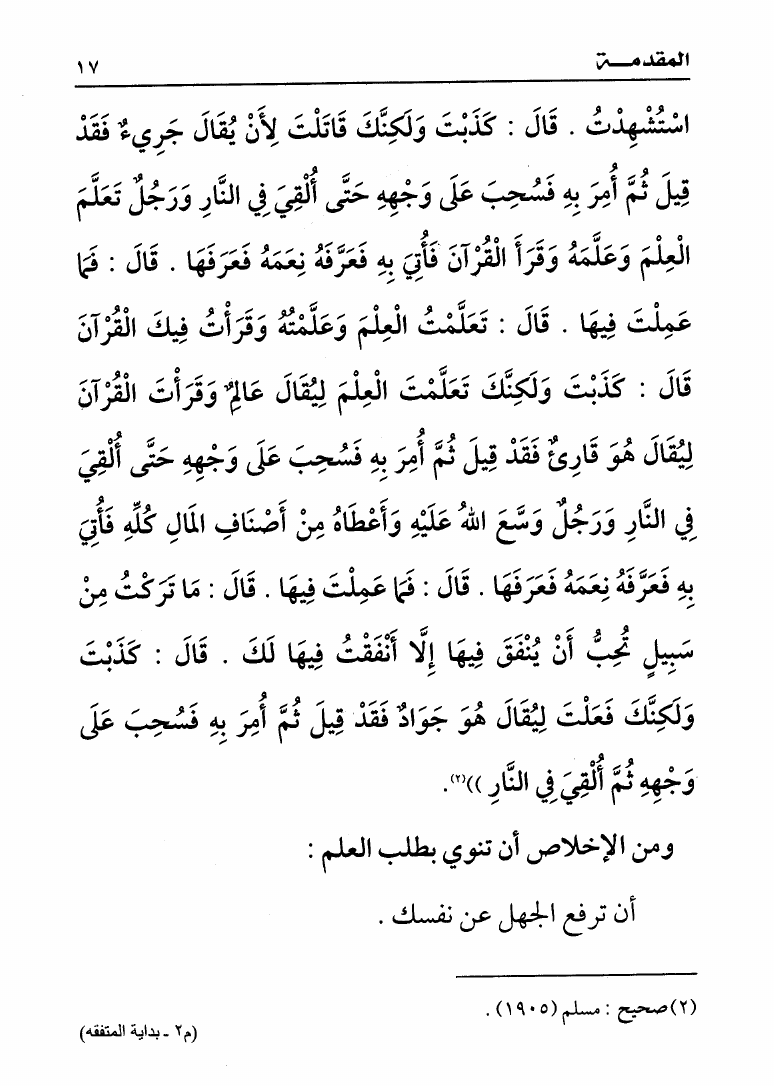 المقدمـــة ١٧
اسْتُشْهِدْتُ . قَالَ : كَذَبْتَ وَلَكِنَّكَ قَاتَلْتَ لِأَنْ يُقَالَ جَرِيءٌ فَقَدْ
قِيلَ ثُمَّ أُمِرَ بِهِ فَسُحِبَ عَلَى وَجْهِهِ حَتَّى أُلْقِيَ فِي النَّارِ وَرَجُلٌ تَعَلَّمَ
الْعِلْمَ وَعَلَّمَهُ وَقَرَأَ الْقُرْآنَ فَأُتِيَ بِهِ فَعَرَّفَهُ نِعَمَهُ فَعَرَفَهَا . قَالَ : فَمَا
عَمِلْتَ فِيهَا . قَالَ : تَعَلَّمْتُ الْعِلْمَ وَعَلَّمْتُهُ وَقَرَأْتُ فِيكَ الْقُرْآنَ
قَالَ : كَذَبْتَ وَلَكِنَّكَ تَعَلَّمْتَ الْعِلْمَ لِيُقَالَ عَالِمٌ وَقَرَأْتَ الْقُرْآنَ
لِيُقَالَ هُوَ قَارِئٌ فَقَدْ قِيلَ ثُمَّ أُمِرَ بِهِ فَسُحِبَ عَلَى وَجْهِهِ حَتَّى أُلْقِيَ
فِي النَّارِ وَرَجُلٌ وَسَّعَ اللهُ عَلَيْهِ وَأَعْطَاهُ مِنْ أَصْنَافِ المَالِ كُلِّهِ فَأُتِيَ
بِهِ فَعَرَّفَهُ نِعَمَهُ فَعَرَفَهَا . قَالَ : فَمَا عَمِلْتَ فِيهَا . قَالَ : مَا تَرَكْتُ مِنْ
سَبِيلٍ تُحِبُّ أَنْ يُنْفَقَ فِيهَا إِلَّا أَنْفَقْتُ فِيهَا لَكَ . قَالَ : كَذَبْتَ
وَلَكِنَّكَ فَعَلْتَ لِيُقَالَ هُوَ جَوَادٌ فَقَدْ قِيلَ ثُمَّ أُمِرَ بِهِ فَسُحِبَ عَلَى
وَجْهِهِ ثُمَّ أُلْقِيَ فِي النَّارِ ))(٢).
ومن الإخلاص أن تنوي بطلب العلم :
أن ترفع الجهل عن نفسك .
(٢) صحيح : مسلم (١٩٠٥) .
(م٢ ـ بداية المتفقه)